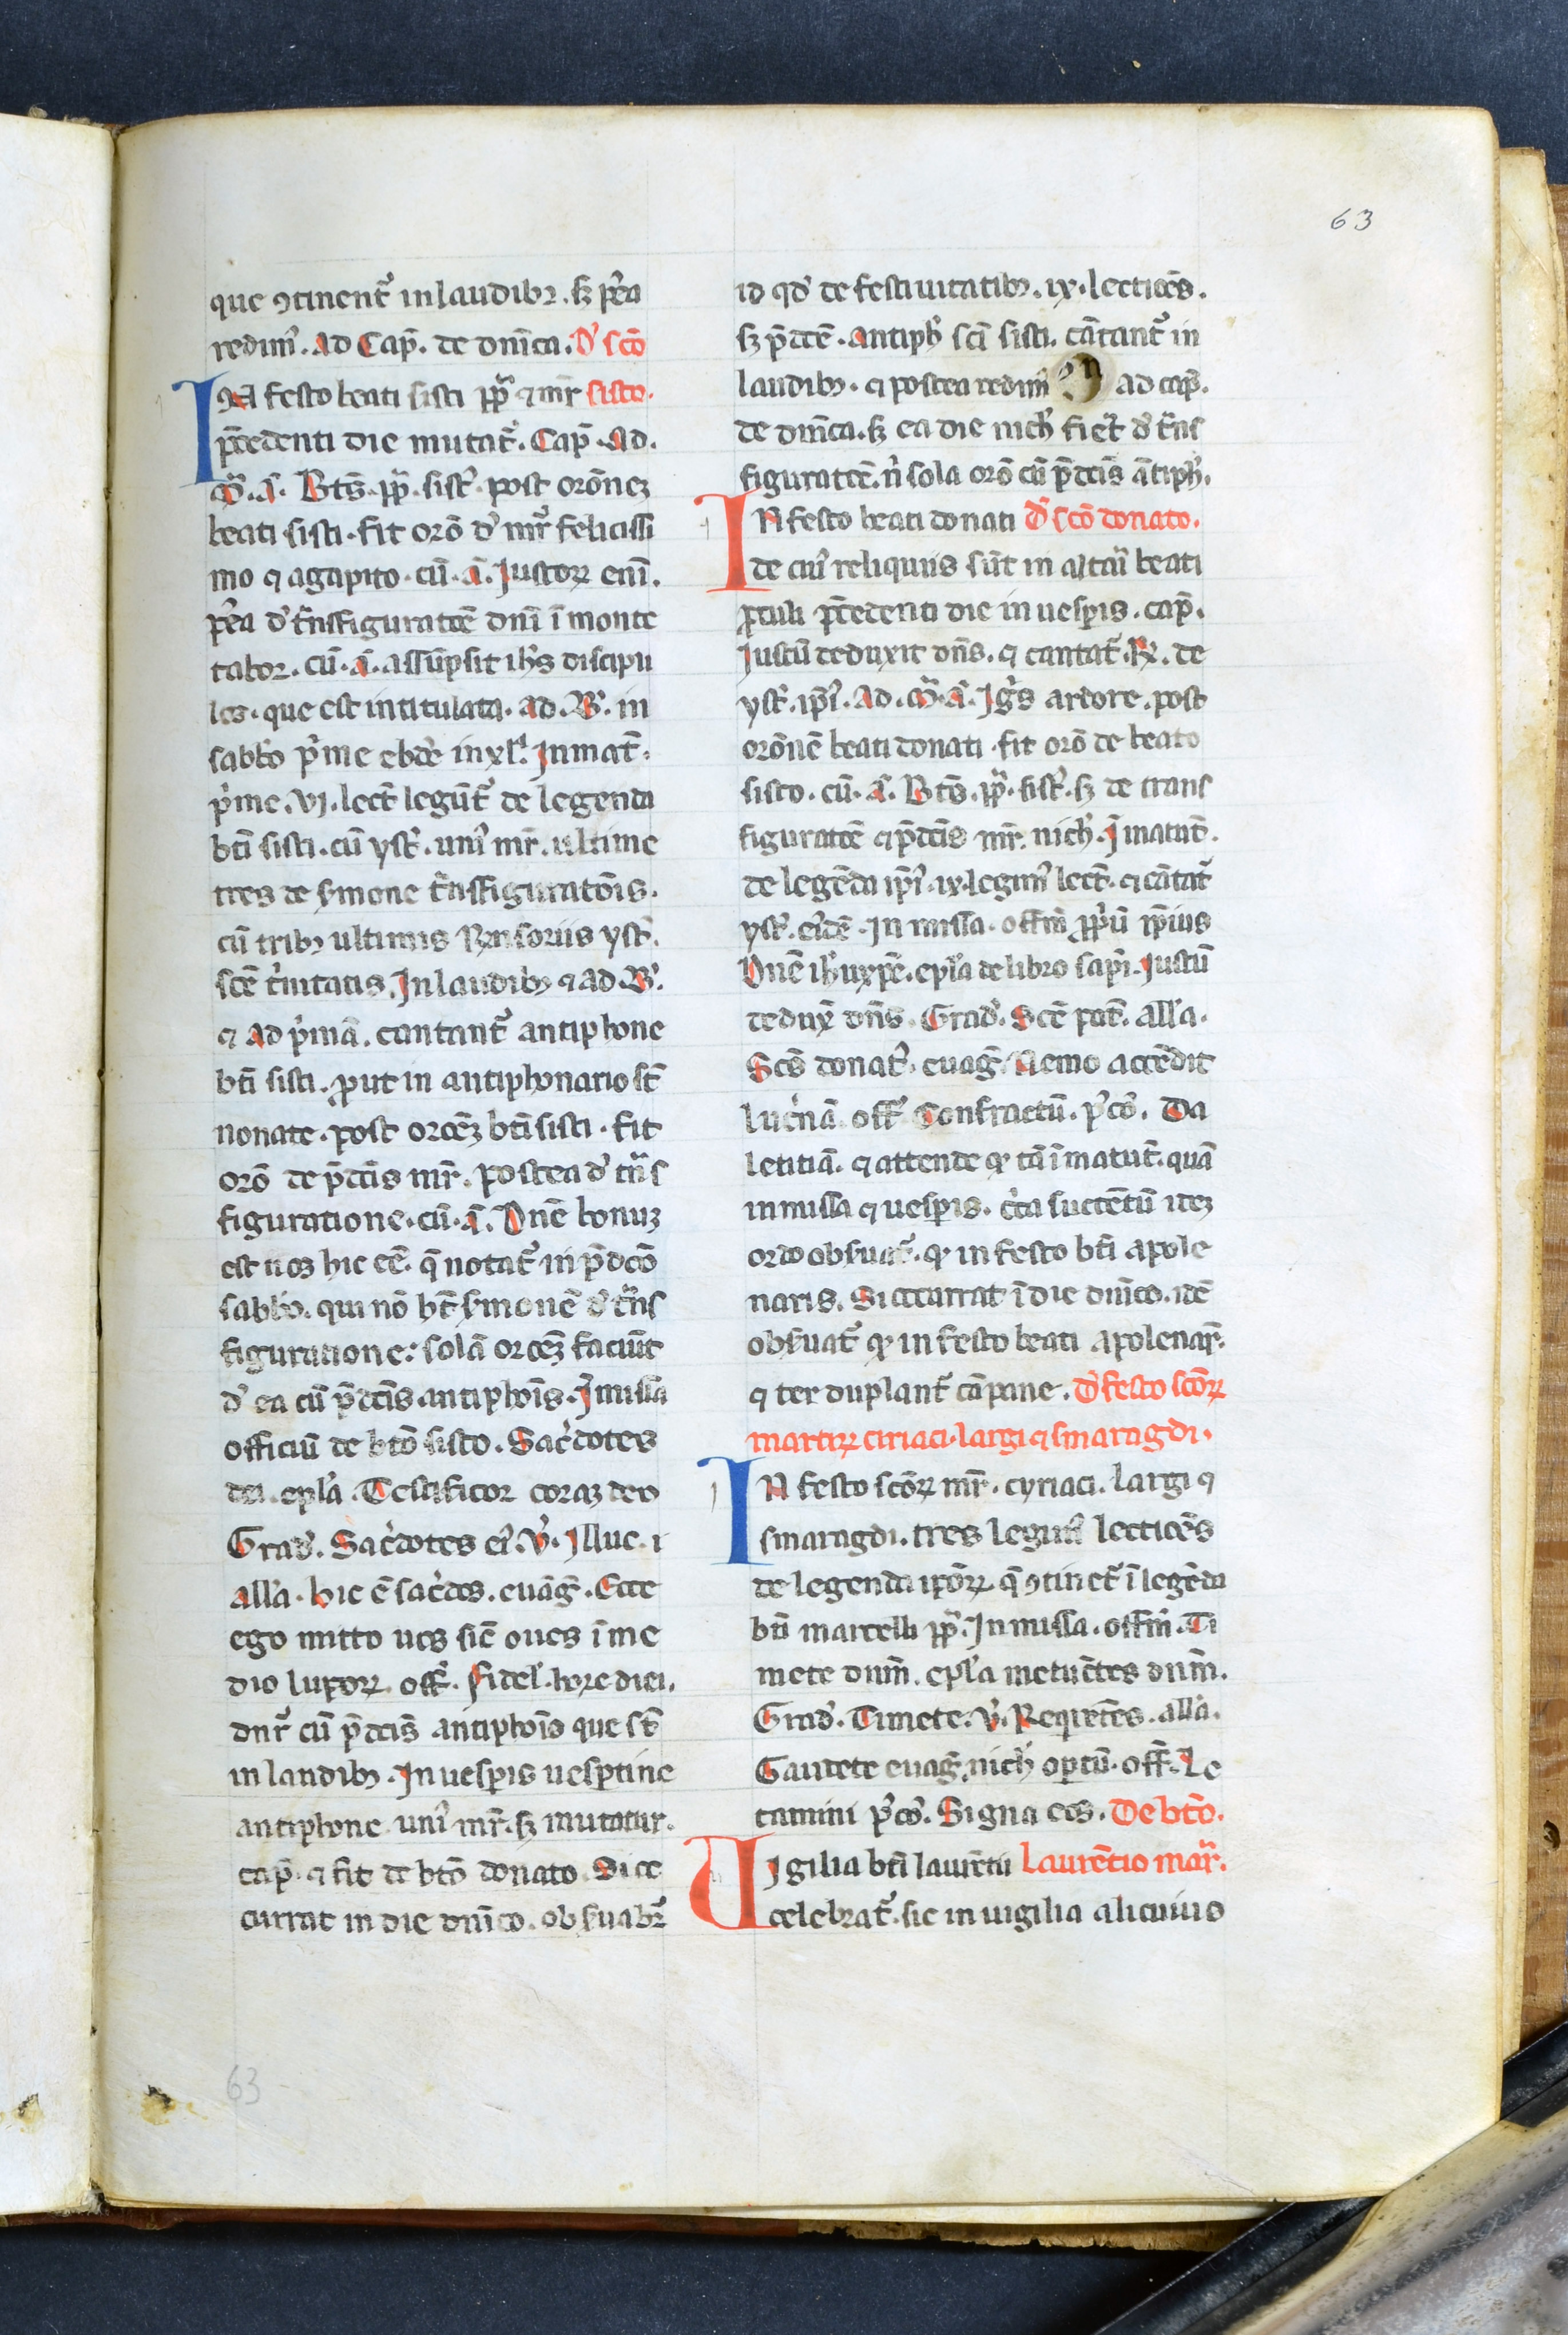 63
que ꝯtinent᷑ in laudibꝫ. sꝫ p̾ea
redim᷑. Ad Cap̄. de dn̄ica. D̓ sc̄o
IN festo beati sisti pp̄ ⁊ mr̄ sisto.
p̄cedenti die mutat᷑. Cap̄. Ad.
M̄. A̅. Bt̄s. pp̄. sist᷑. post orōnez
beati sisti. fit orō d̓ mr̄ felicissi
mo ⁊ agapito. cū. a̅. Justoꝝ eni̅.
p̾ea d̓ tn̄sfiguratōe dnī ī monte
tabor. cū. a̅. assūpsit ih̄s discipu
los. que est intitulata. ad. B̓. in
sabb̓o p̓me ebde̅ in xl᷑. In mat̄.
p̓me. vj. lect̄ legūt᷑ de legenda
bt̄i sisti. cū yst᷑. uni᷑ mr̄. ultime
tres de s̓mone tn̄sfiguratōis.
cū tribꝫ ultimis Rn̄soriis yst᷑.
sc̄e t̓nitatis. In laudibꝫ ⁊ ad. B̓.
⁊ Ad p̓mā. cantant᷑ antiphone
bt̄i sisti. ꝓut in antiphonario st̄
nonate. post orōez bt̄i sisti. fit
orō de p̄dc̄is mr̄. postea d̓ tn̄s
figuratione. cū. a̅. Dn̄e bonuz
est nos hic eē. q̄ notat᷑ in p̄dc̄o
sabb̓o. qui nō hn̄t s̓monē d̓ tn̄s
figuratione: solā orōez faciūt
d̓ ea cū p̄dc̄is antiphōis. I̅ missa
officiū de bt̄o sisto. Sac̓dotes
dei. epl̓a. Testificor coraz deo
Grad᷑. Sac̓dotes ei᷑. V̓. Illuc. i
all̓a. hic ē sac̓dos. euāg̓. Ecce
ego mitto uos sic̄ oues ī me
dio lupoꝝ. off᷑. fidel̓. hore diei.
dn̄r᷑ cū p̄dc̄is antiphōis que st̄
in laudibꝫ. In uesp̄is uesp̄tine
antiphone uni᷑ mr̄. sꝫ mutatur.
cap̄. ⁊ fit de bt̄o donato. Si oc
currat in die dn̄ico. obs̓uabr᷑
id qd̓ de festiuitatibꝫ. ix. lectiōes.
sꝫ p̄dc̄e. antiph᷑ sc̄i sisti. cātant᷑ in
laudibꝫ. ⁊ postea redim᷑ ad cap̄.
de dn̄ica. sꝫ ea die nich᷑ fiet᷑ d̓ tn̄s
figuratōe. n̓ sola orō cū p̄dc̄is ātiph᷑.
IN festo beati donati D̓ sc̄o donato.
de cui᷑ reliquiis sūt in altari beati
proculi p̄cedenti die in uesp̄is. cap̄.
Justū deduxit dn̄s. ⁊ cantat᷑. R̓. de
yst᷑. ip̄i᷑. Ad. M̄. A̅. Ig̓s ardore. post
orōnē beati donati. fit orō de beato
sisto. cū. A̅. Bt̄s. pp̄. sist᷑. sꝫ de trans
figuratōe ⁊ p̄dc̄is mr̄. nich᷑. I̅ matut̄.
de legēda ip̄i᷑. ix. legim᷑ lect̄. ⁊ cātat᷑
yst᷑. eidē. In missa. offm̄ pp̓ū ip̄ius
Dn̄e ih̓u xp̄e. epl̓a de libro sapi̅. Justū
dedux̄ dn̄s. Grad᷑. Sc̄e pat̄. all̓a.
Sc̄s donat᷑. euag̓. Nemo accēdit
luc̓nā. off᷑. Confractū. p̓cō. Da
letitiā. ⁊ attende qꝫ tā ī matut̄. quā
in missa ⁊ uesp̄is. c̓ca succētū idez
ordo obs̓uat᷑. qꝫ in festo bt̄i apole
naris. Si occurrat ī die dn̄ico. idē
obs̓uat᷑ qꝫ in festo beati apolenar̄.
⁊ ter duplant᷑ cāpane. D̓ festo sc̄oꝝ
martirꝝ ciriaci. largi ⁊ smaragdi.
IN festo sc̄oꝝ mr̄. cyriaci. largi ⁊
smaragdi. tres legim᷑ lectiōes
de legenda ip̄oꝝ. q̄ ꝯtinet᷑ ī legēda
bt̄i marcelli pp̄. In missa. offm̄. Ti
mete dnm̄. epl̓a metuētes dnm̄.
Grad᷑. Timete. V̓. Reqirētes. all̓a.
Gaudete euag̓. nich᷑ optū. off᷑. Le
tamini p̓cō. Signa eos. De bt̄o.
Vigilia bt̄i laurētii Laurētio mar̄.
celebrat᷑. sic in uigilia alicuius
63